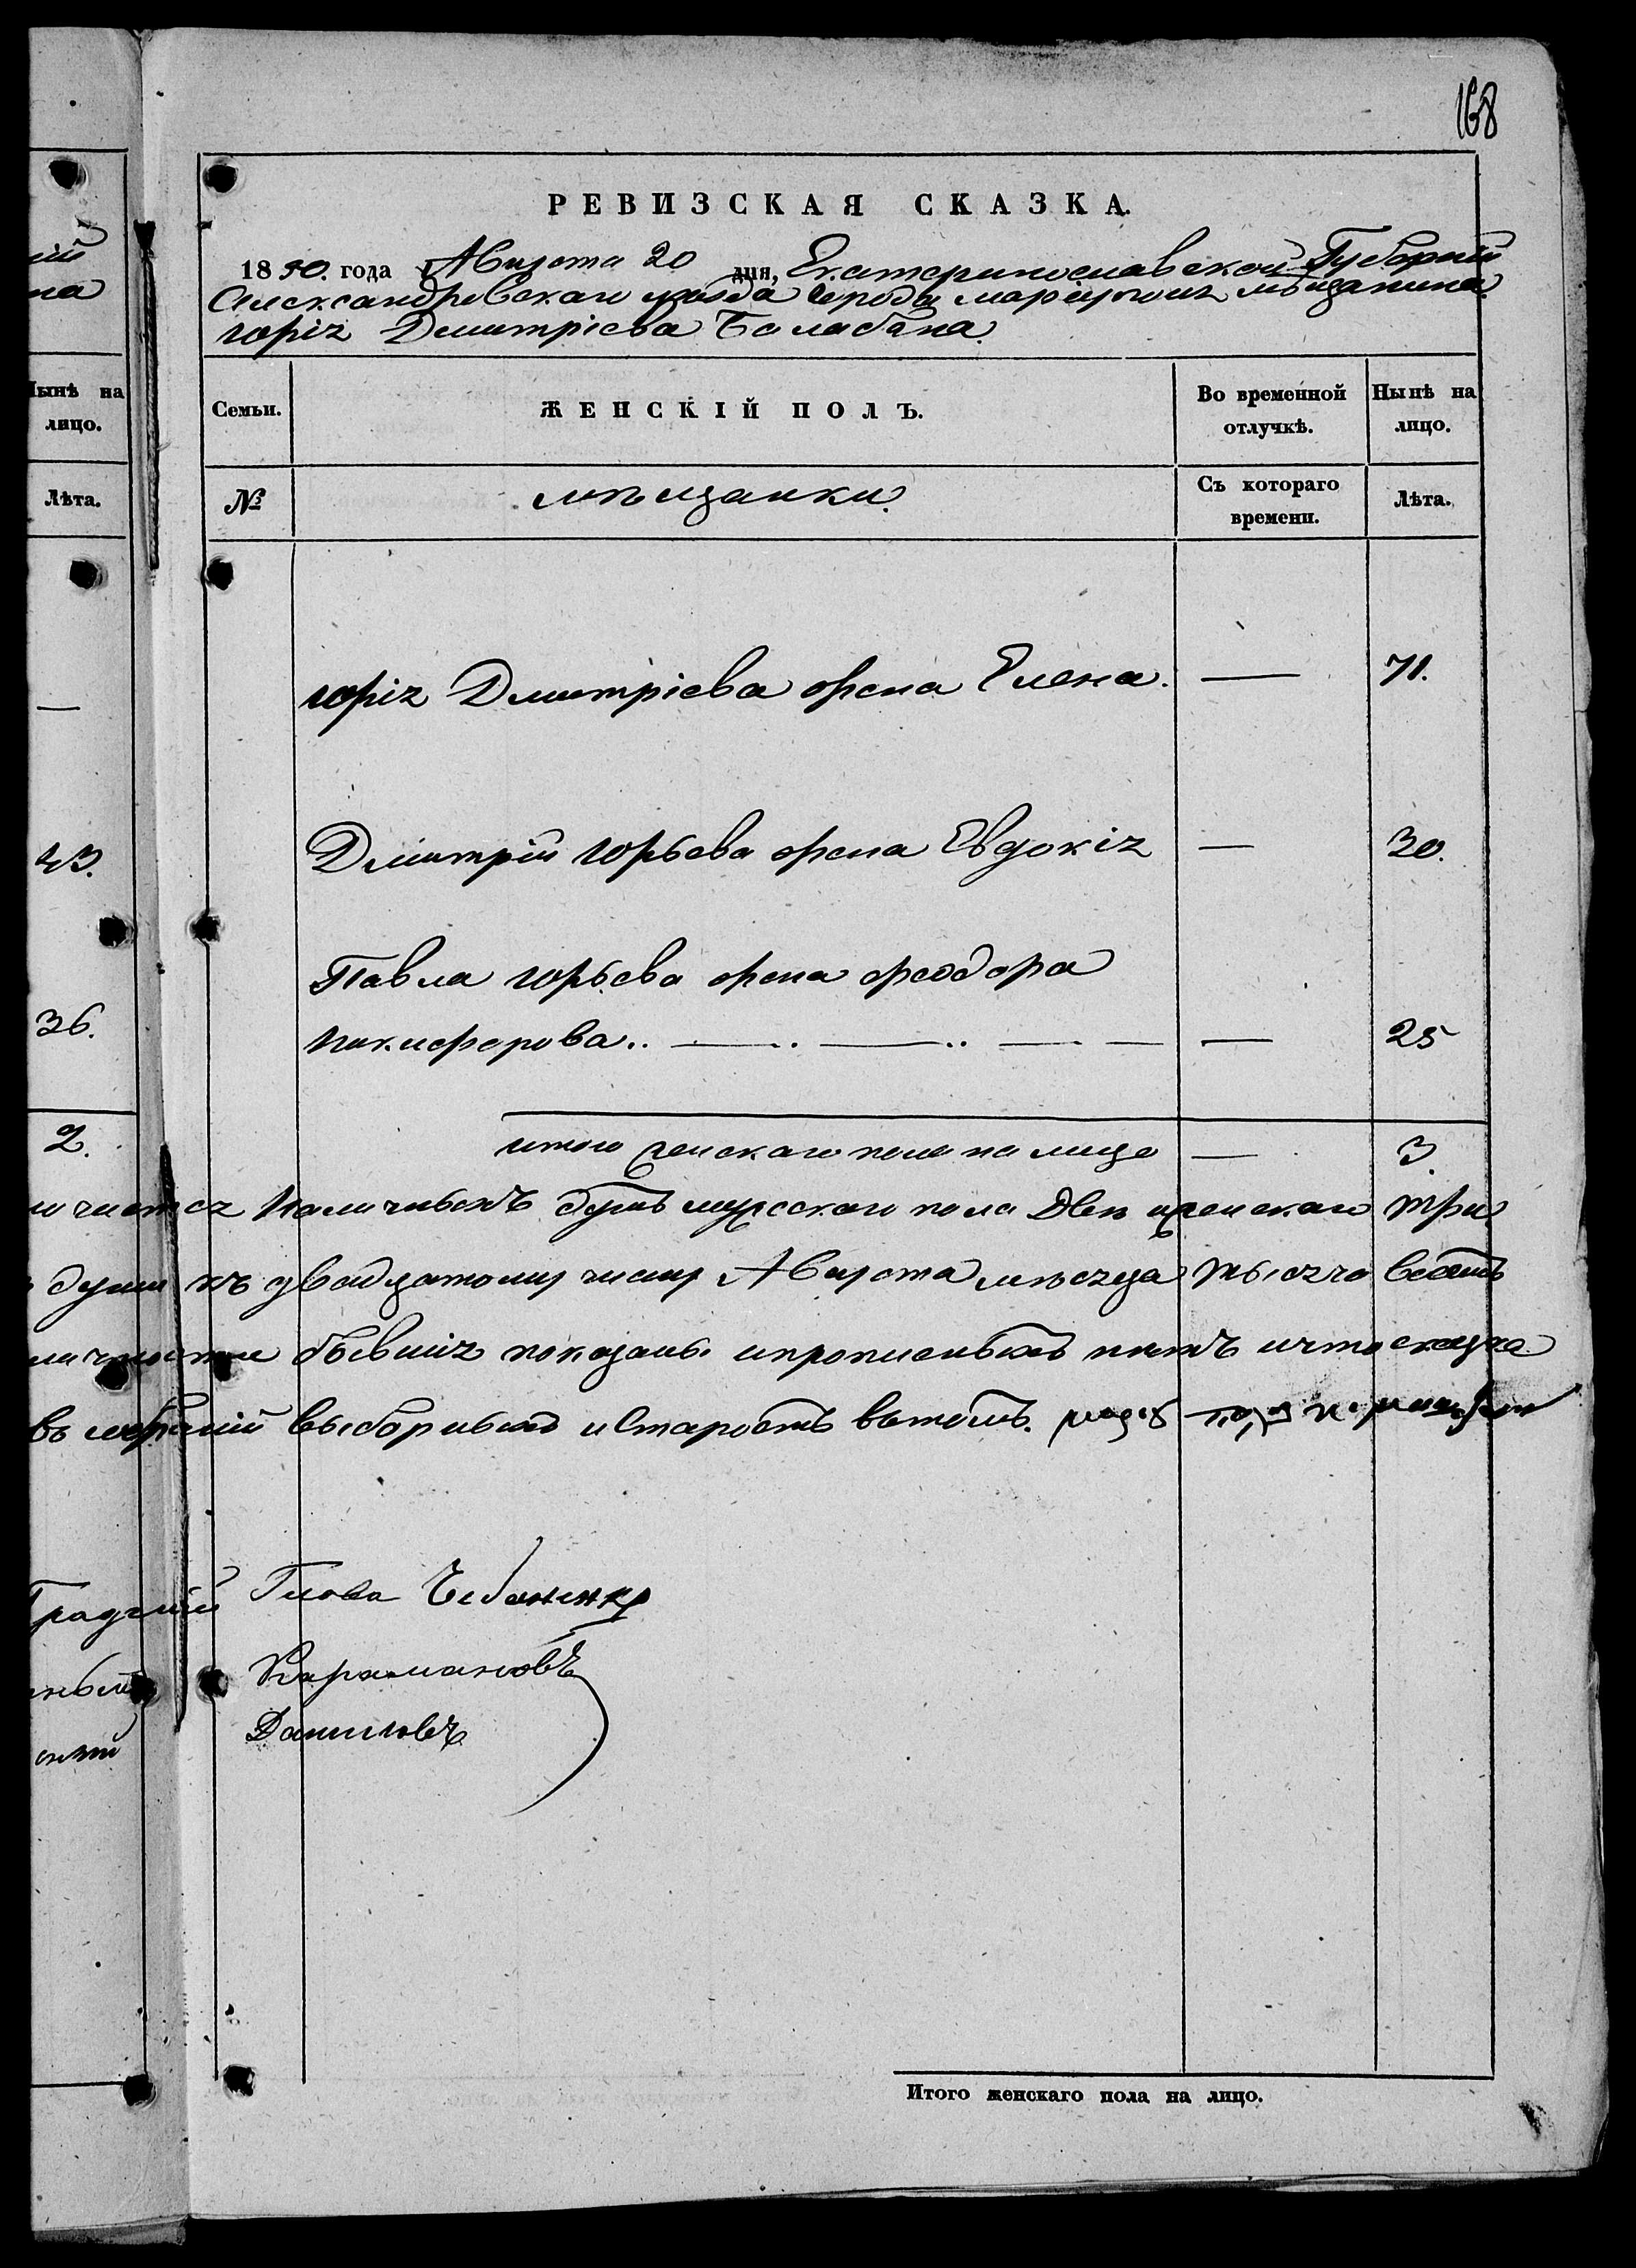 168
РЕВИЗСКАЯ СКАЗКА.
1850. года Августа 20 дня, Екатеринославской Губерніи
Александровскаго уѣзда города Маріуполя мѣщанина
Юрія Дмитріева Балабана.
Нынѣ на лицо.
Лѣта.
43.
36.
2.
Семьи.
ЖЕНСКІЙ ПОЛЪ.
Во временной отлучкѣ.
Нынѣ на лицо.
№
мѣщанки.
Съ котораго времени.
Лѣта.
Юрія Дмитріева жена Елена. — 71.
Дмитрія Юрьева жена Евдокія — 30.
Павла Юрьева жена Феодора
Никифорова.. — — — — — 25
итого женскаго пола на лицо — 3.
наличныхъ душъ мужескаго пола Двѣ женскаго три
души къ двадцатому числу Августа мѣсяца тысяча
бывшія показаны и прописныхъ нѣтъ и что сказка
выборныхъ и Старостъ вѣтомъ.
Градскій Глова Чебаненко
Карамановъ
Даниловъ
Итого женскаго пола на лицо.